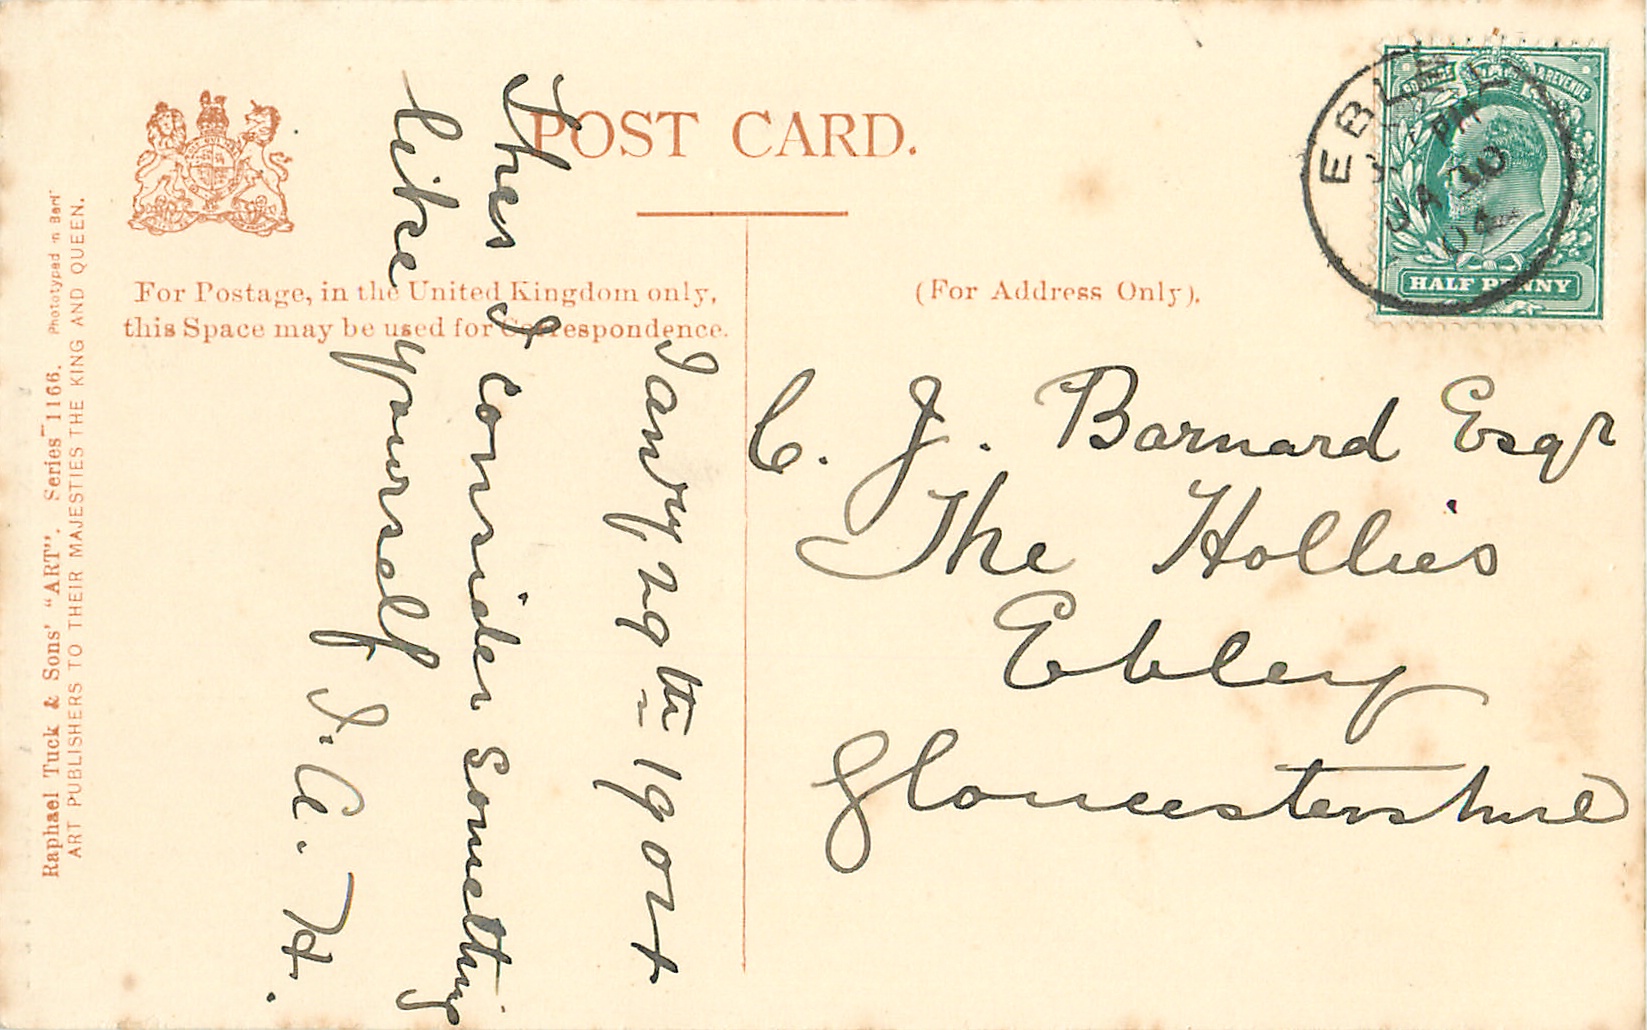 POST CARD.
For Postage, in the United Kingdom only,
this Space may be used for Correspondence.
(For Address Only).
POSTAGE & REVENUE
HALF PENNY
EBLEY
PM
JA 30
04
Janry 29th 1904
This I consider something
like yourself
J. A. H.
C. J. Barnard Esqr
The Hollies
Ebley
Gloucestershire
Raphael Tuck & Sons' "ART". Series 1166. Phototyped in Berlin
ART PUBLISHERS TO THEIR MAJESTIES THE KING AND QUEEN.